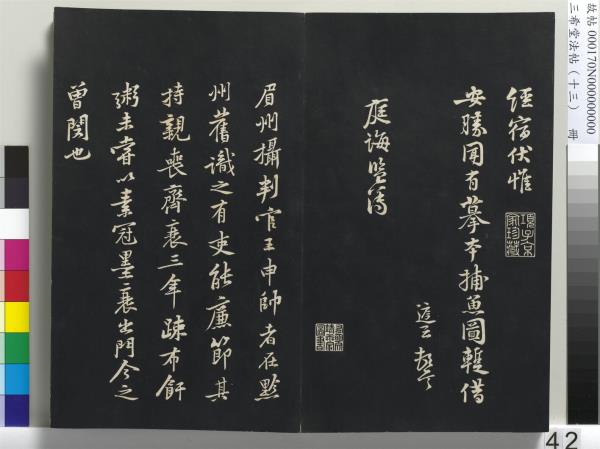 故帖 000170N000000000
三希堂法帖（十三） 冊
經宿伏惟
安勝聞有摹本捕魚圖蹔借
庭誨監簿
項子京家珍藏
眉州攝判官王申帥者在黔
州舊識之有吏能廉節其
持親喪齊衰三年疎布飦
粥未嘗以素冠墨衰出門今之
曾閔也
42